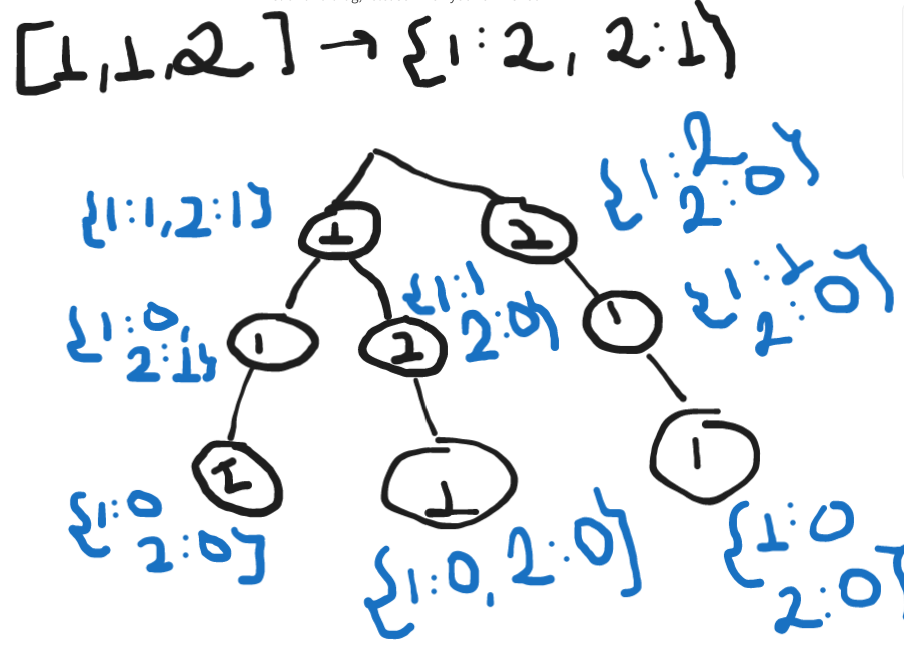 [1,1,2] → {1:2, 2:1}
{1:1,2:1}
1
2
{1:2
2:0}
{1:0,
2:1}
1
{1:1
2:0}
2
1
{1:1
2:0}
2
1
1
{1:0
2:0}
{1:0,2:0}
{1:0
2:0}